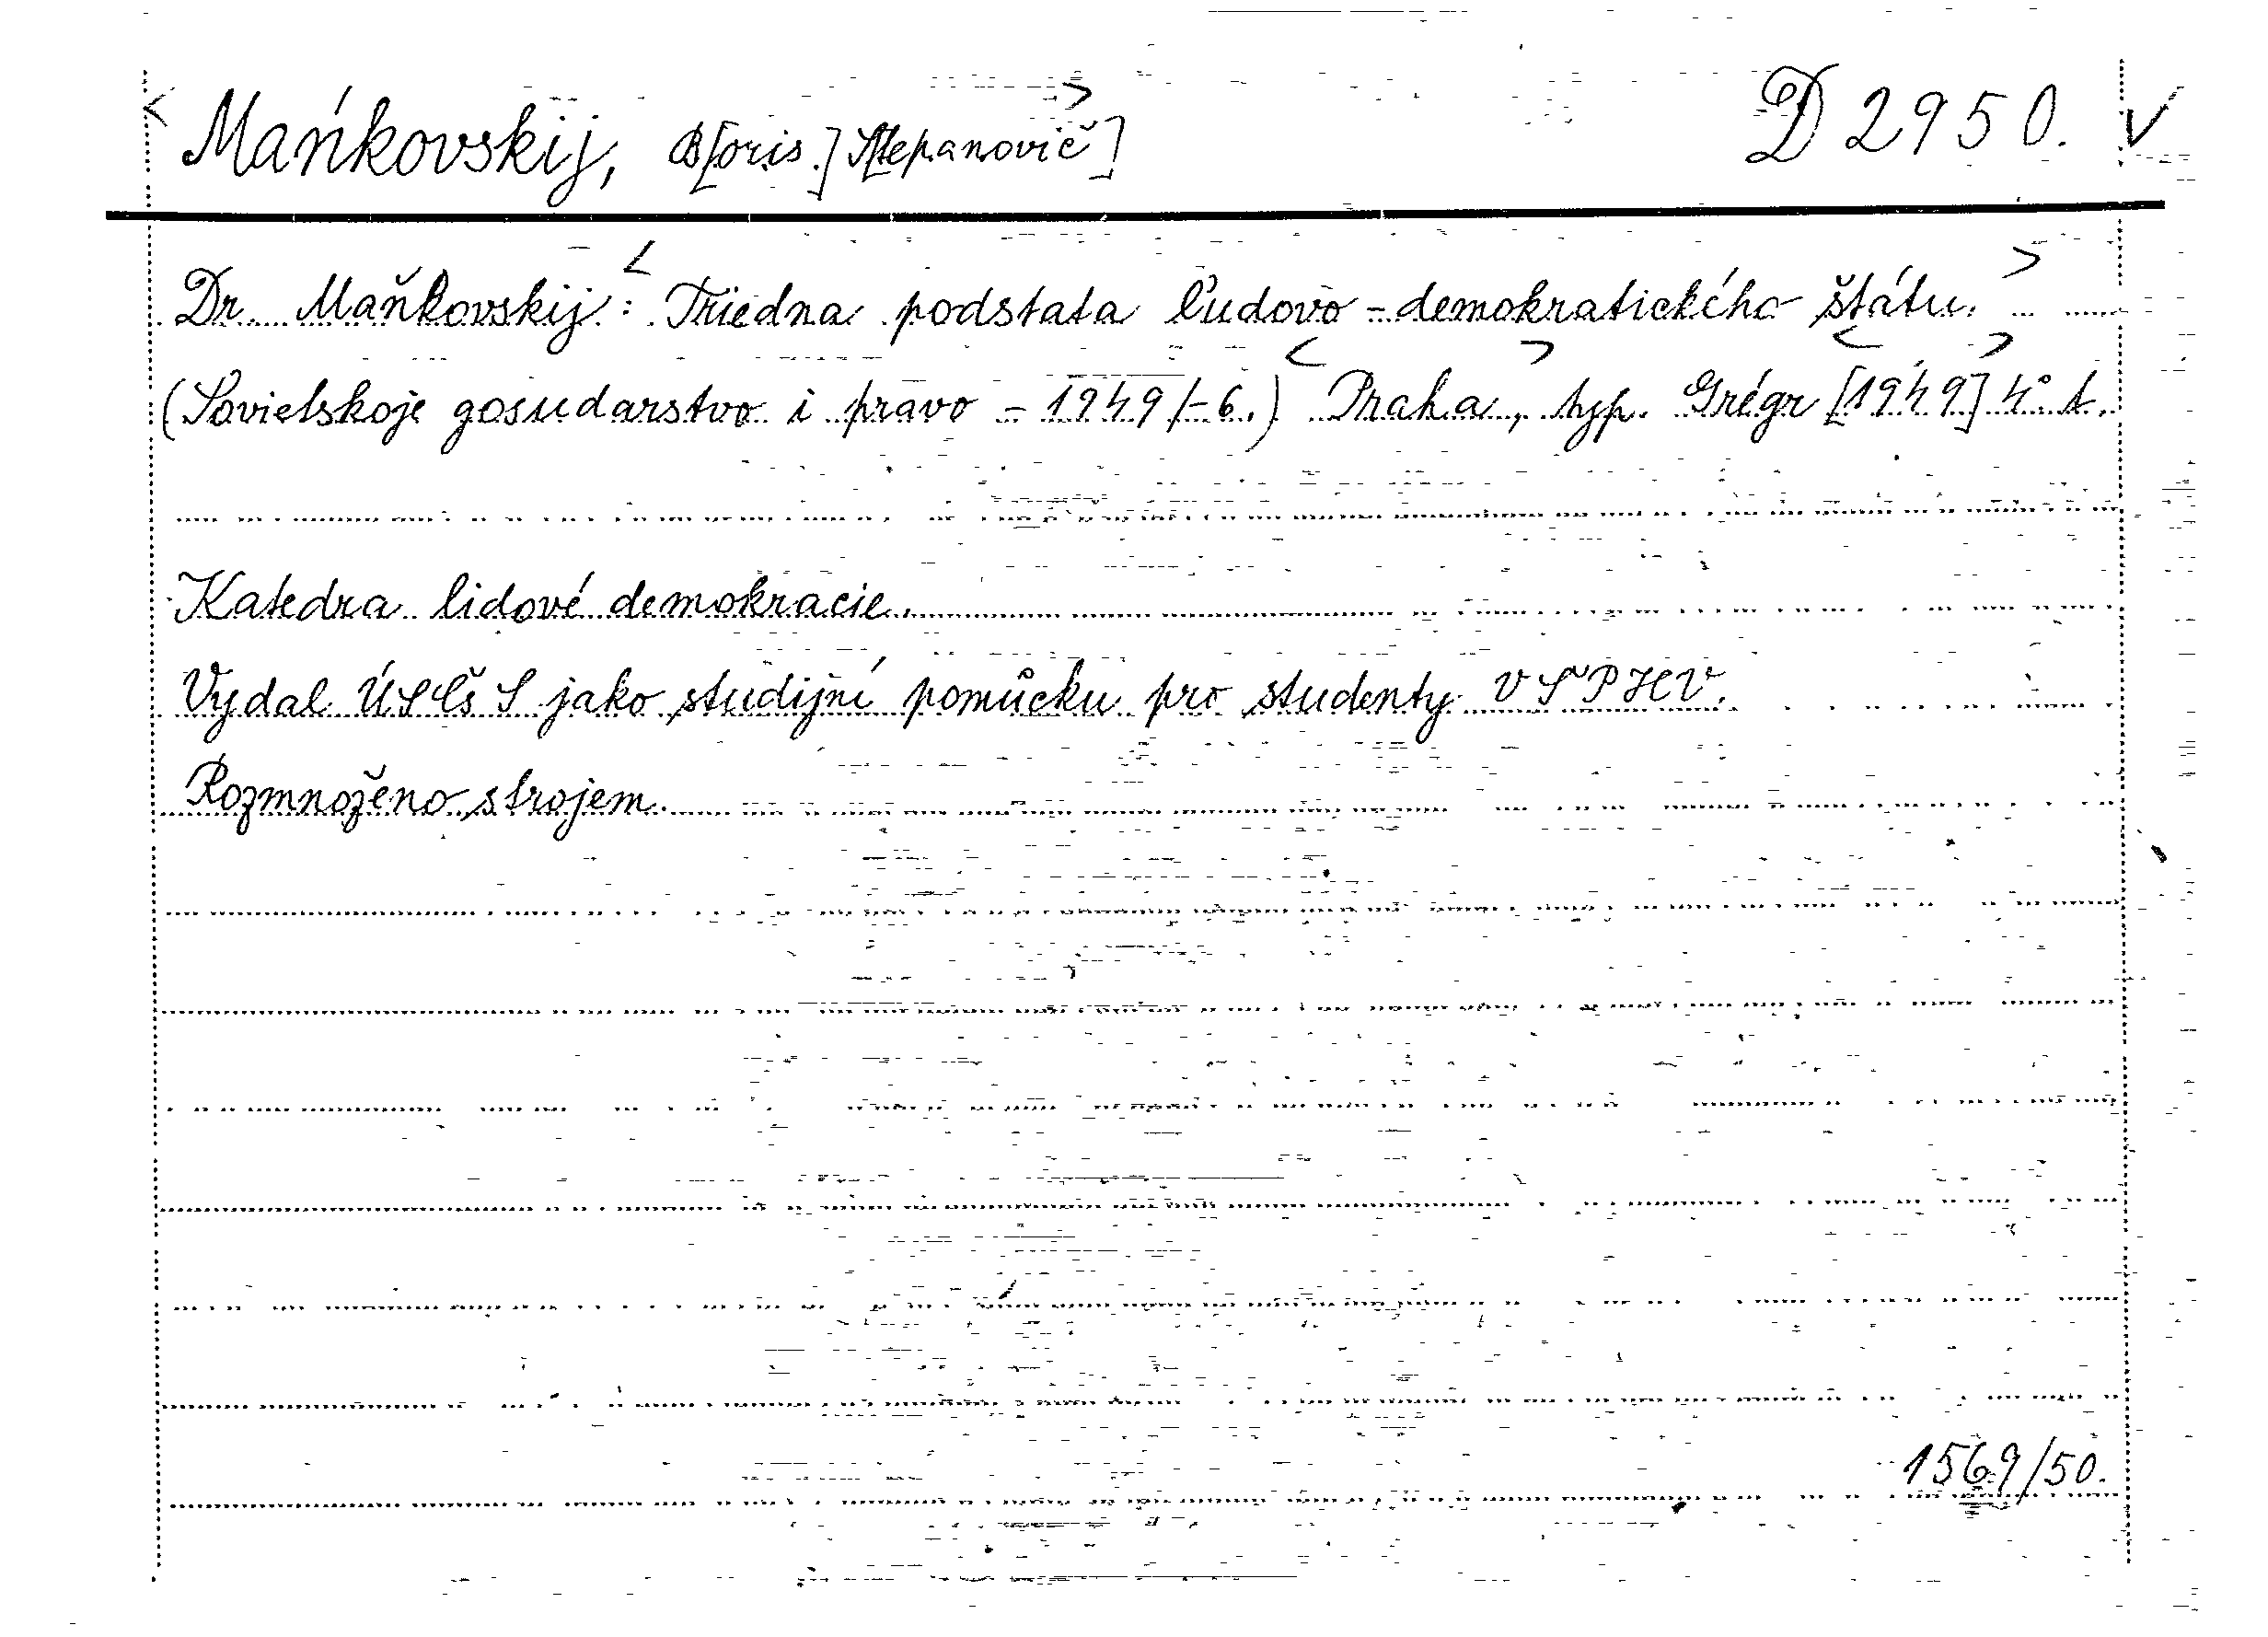 < Mańkovskij, B[oris.] S[tepanovič] > D 2950. √
Dr. Maňkovskij: < Triedna podstata ľudovo-demokratického štátu. >
(Sovietskoje gosudarstvo i pravo - 1949/-6.) < Praha >, typ. Grégr < [1949] > 4° t.
Katedra lidové demokracie.
Vydal ÚSČs S jako studijní pomůcku pro studenty VŠPHV.
Rozmnoženo strojem.
1569/50.